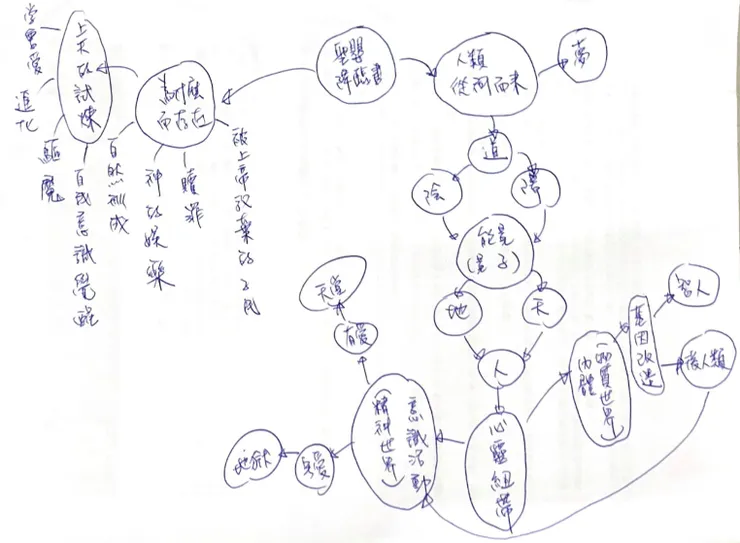 聖嬰
降臨書
人類
從何而來
夢
為什麼
而存在
上天的試煉
學會愛
進化
驅魔
自我意識覺醒
自然形成
神的娛樂
贖罪
被上帝放棄的子民
道
陰
陽
能量
(量子)
地
天
人
心靈紐帶
肉體
(物質世界)
基因改造
智人
後人類
意識活動
(精神世界)
有愛
天堂
地獄